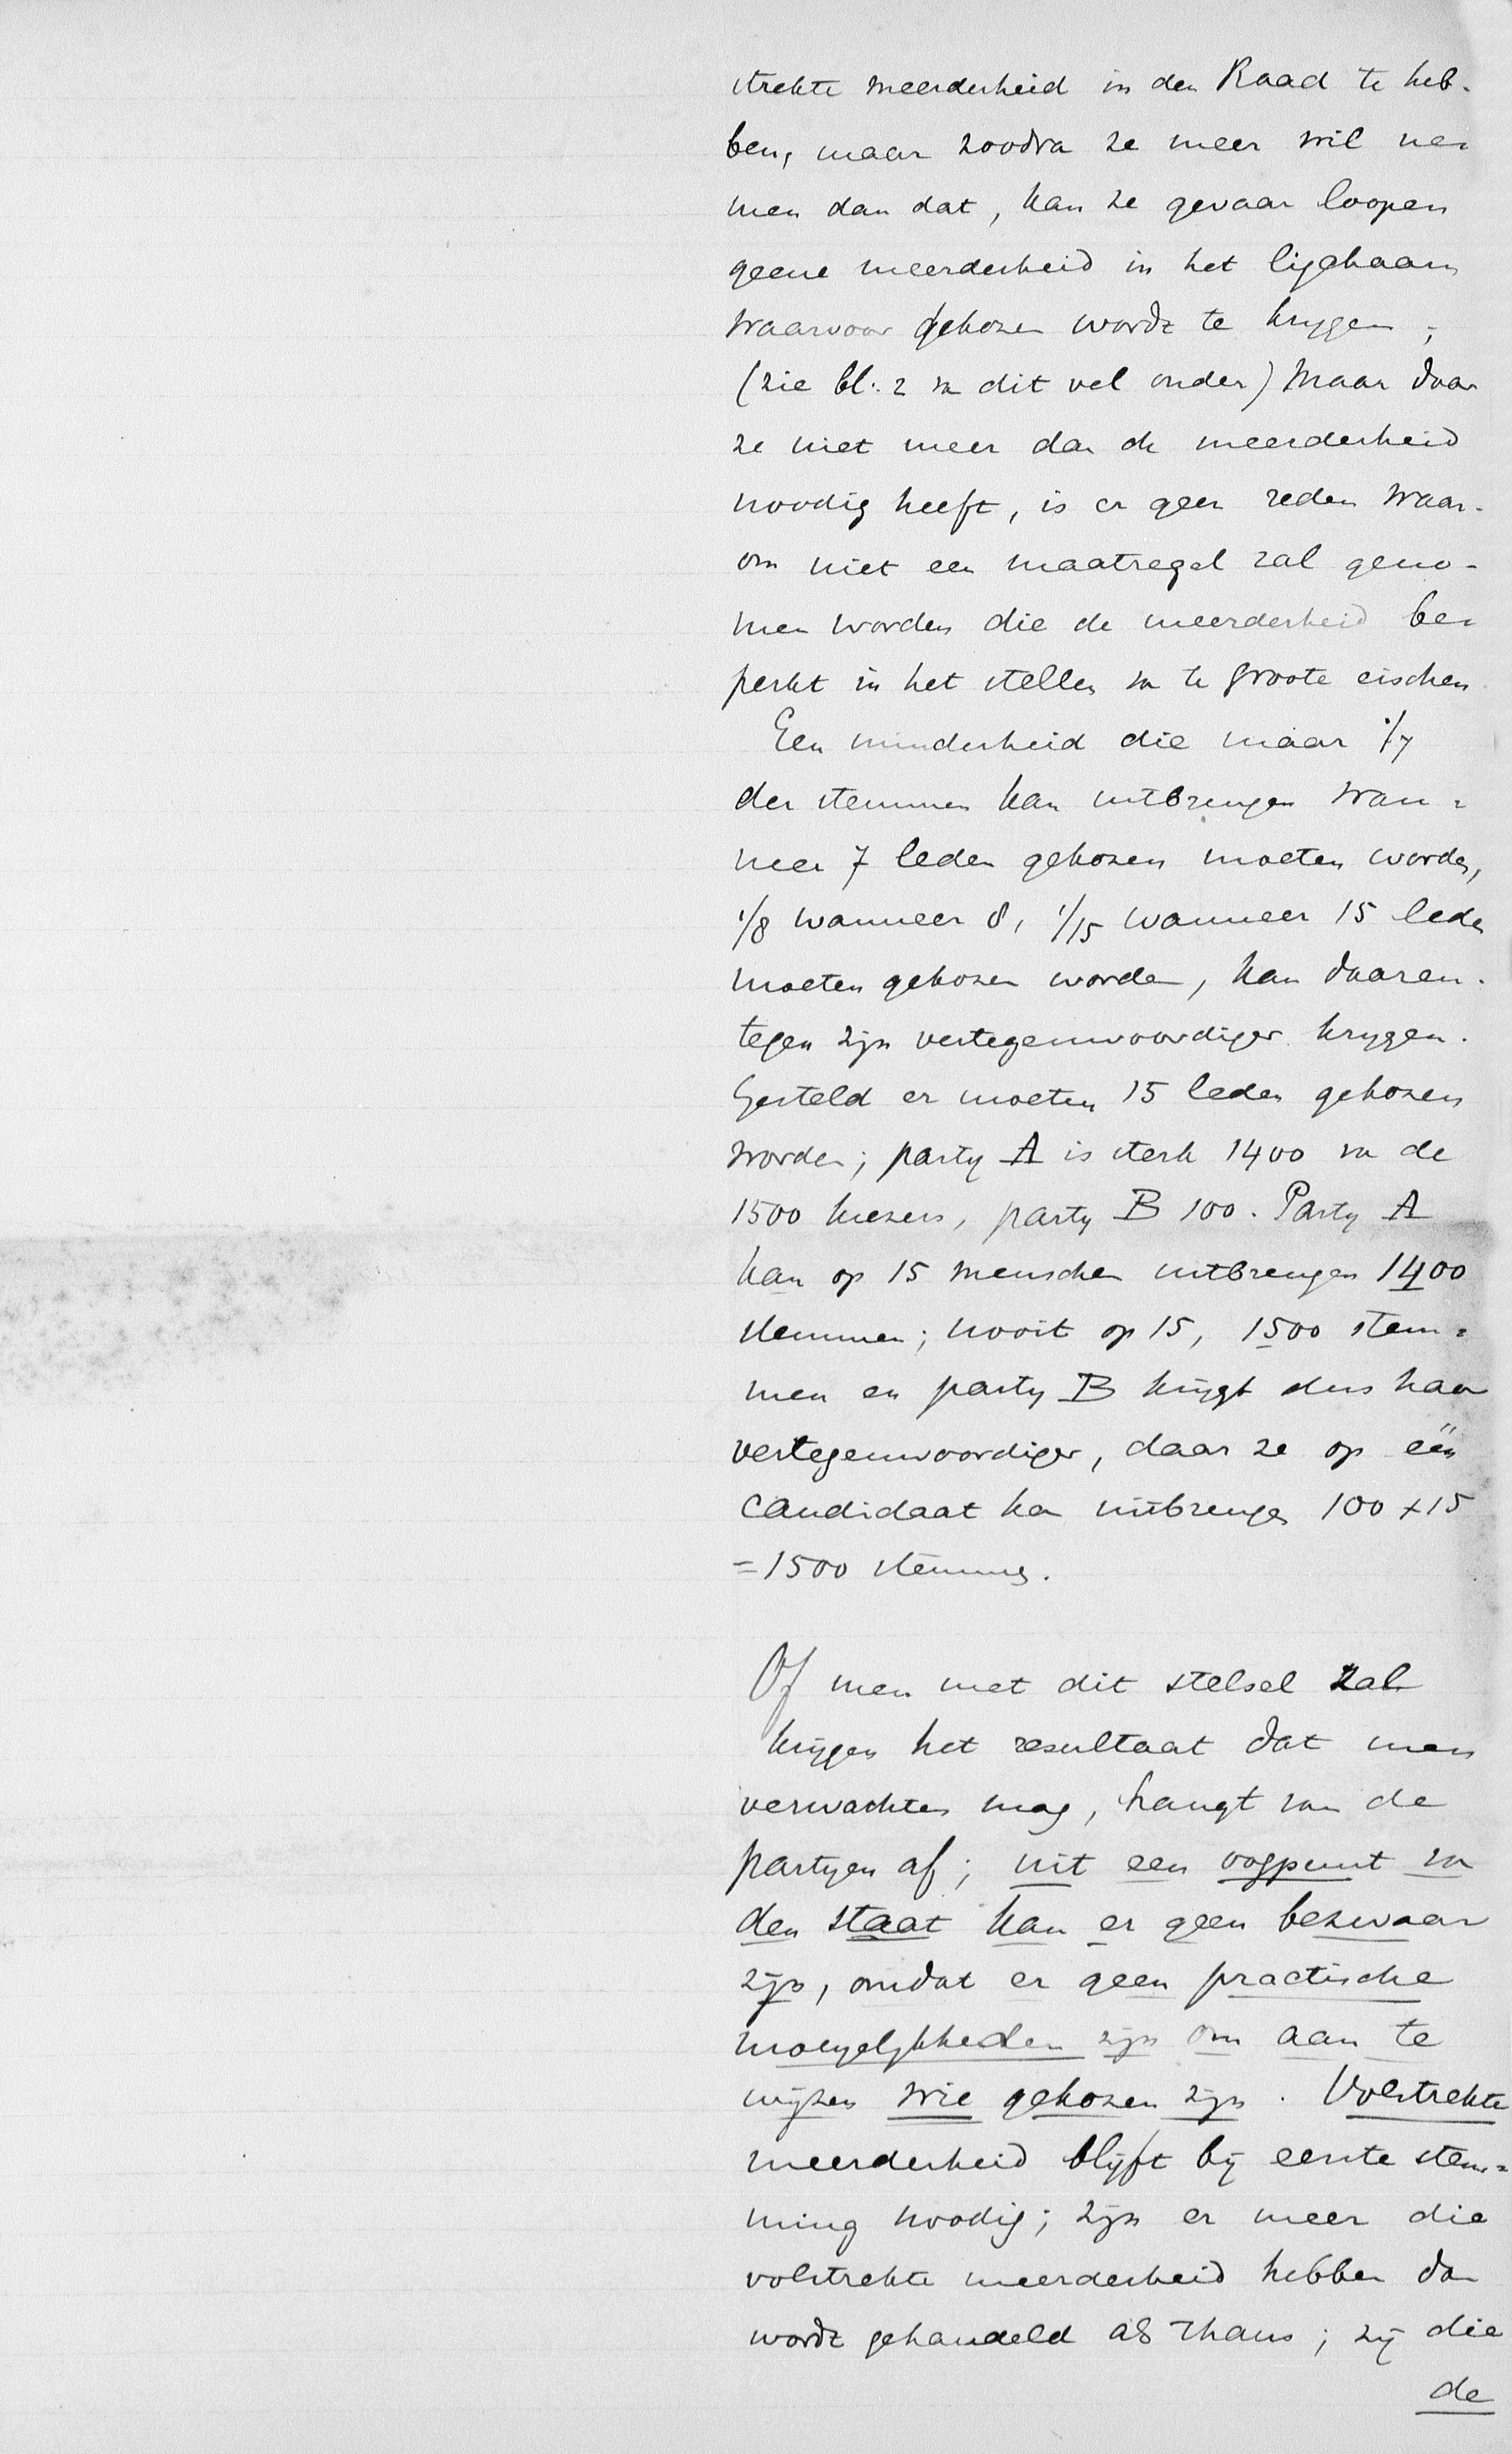 strekte meerderheid in den Raad te heb-
ben, maar zoodra ze meer wil ne-
men dan dat, kan ze gevaar loopen
geene meerderheid in het ligchaam
waarvoor gekozen wordt te krygen;
(zie bl. 2 van dit vel onder) Maar daar
ze niet meer dan de meerderheid
noodig heeft, is er geen reden waar-
om niet een maatregel zal geno-
men worden die de meerderheid be-
perkt in het stellen van te groote eischen.
Een minderheid die maar 1/7
der stemmen kan uitbrengen wan-
neer 7 leden gekozen moeten worden,
1/8 wanneer 8, 1/15 wanneer 15 leden
moeten gekozen worden, kan daaren-
tegen zijn vertegenwoordiger krygen.
Gesteld er moeten 15 leden gekozen
worden; party A is sterk 1400 van de
1500 kiezers, party B 100. Party A
kan op 15 menschen uitbrengen 1400
stemmen; nooit op 15, 1500 stem-
men en party B krijgt dus haar
vertegenwoordiger, daar ze op één
candidaat kan uitbrengen 100 x 15
= 1500 stemmen.
Of men met dit stelsel zal
krijgen het resultaat dat men
verwachten mag, hangt van de
partyen af; uit een oogpunt van
den staat kan er geen bezwaar
zijn, omdat er geen practische
moeyelykheden zijn om aan te
wijzen wie gekozen zijn. Volstrekte
meerderheid blijft bij eerste stem-
ming noodig; zijn er meer die
volstrekte meerderheid hebben dan
wordt gehandeld als thans; zij die
de